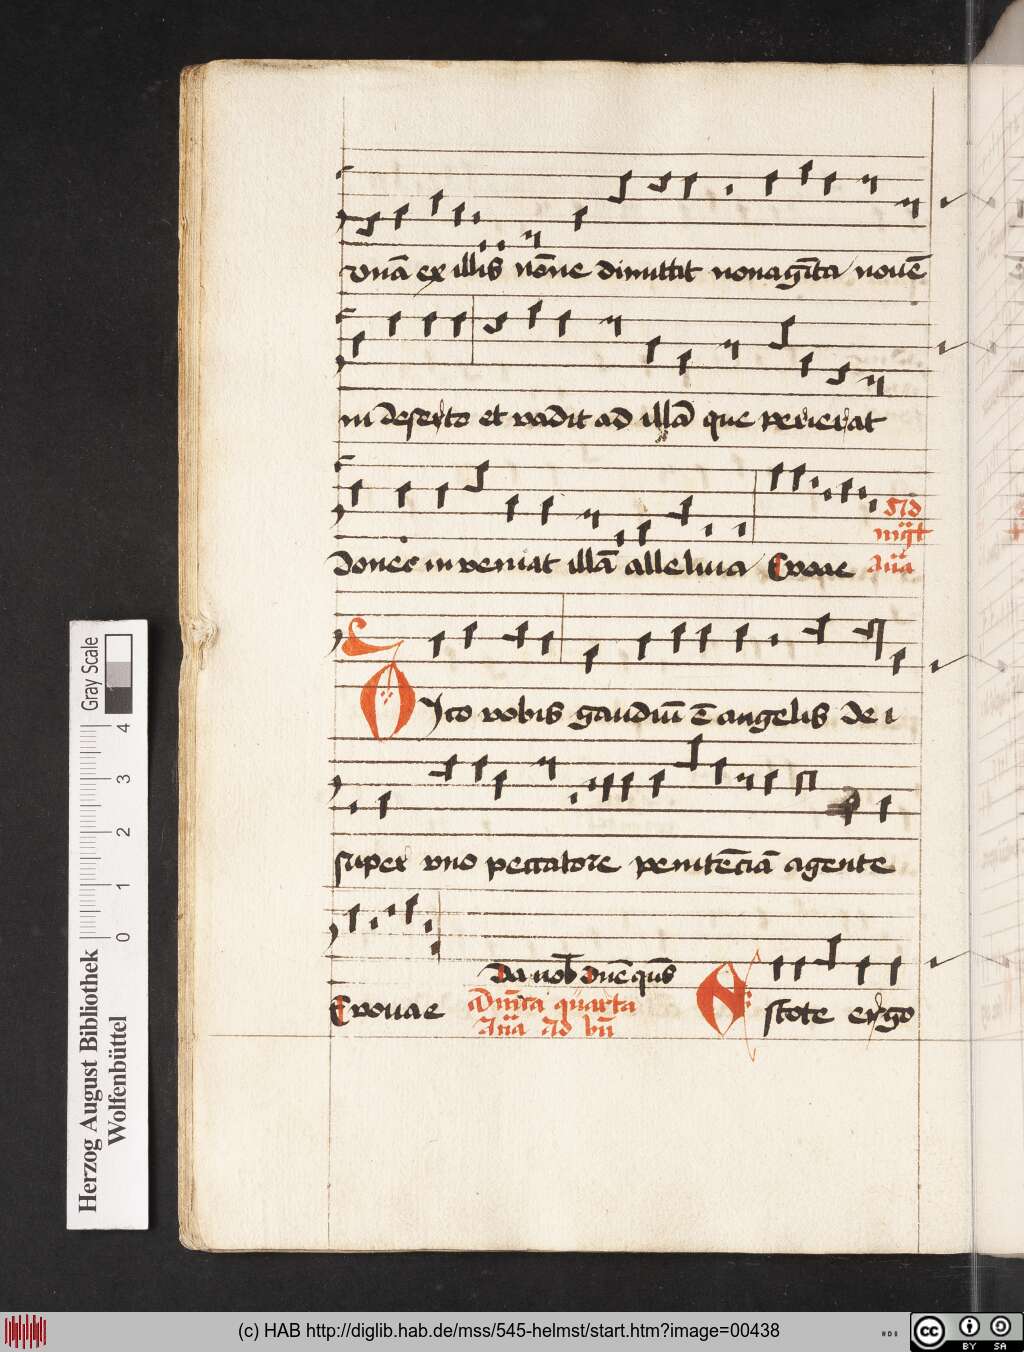 vnā ex illis nōne dimittit nonagīta nouē
in deserto et vadit ad illā que perierat
donec inveniat illā alleluia Evoae
Ad
mgt̄
Añā
Dico vobis gaudiū ē angelis dei
super vno peccatore penitēciā agente
Evouae
Da nob dñe qus
Dñica quarta
Añā Ad bñ
Estote ergo
Gray Scale
0 1 2 3 4
Herzog August Bibliothek
Wolfenbüttel
(c) HAB http://diglib.hab.de/mss/545-helmst/start.htm?image=00438
cc BY SA